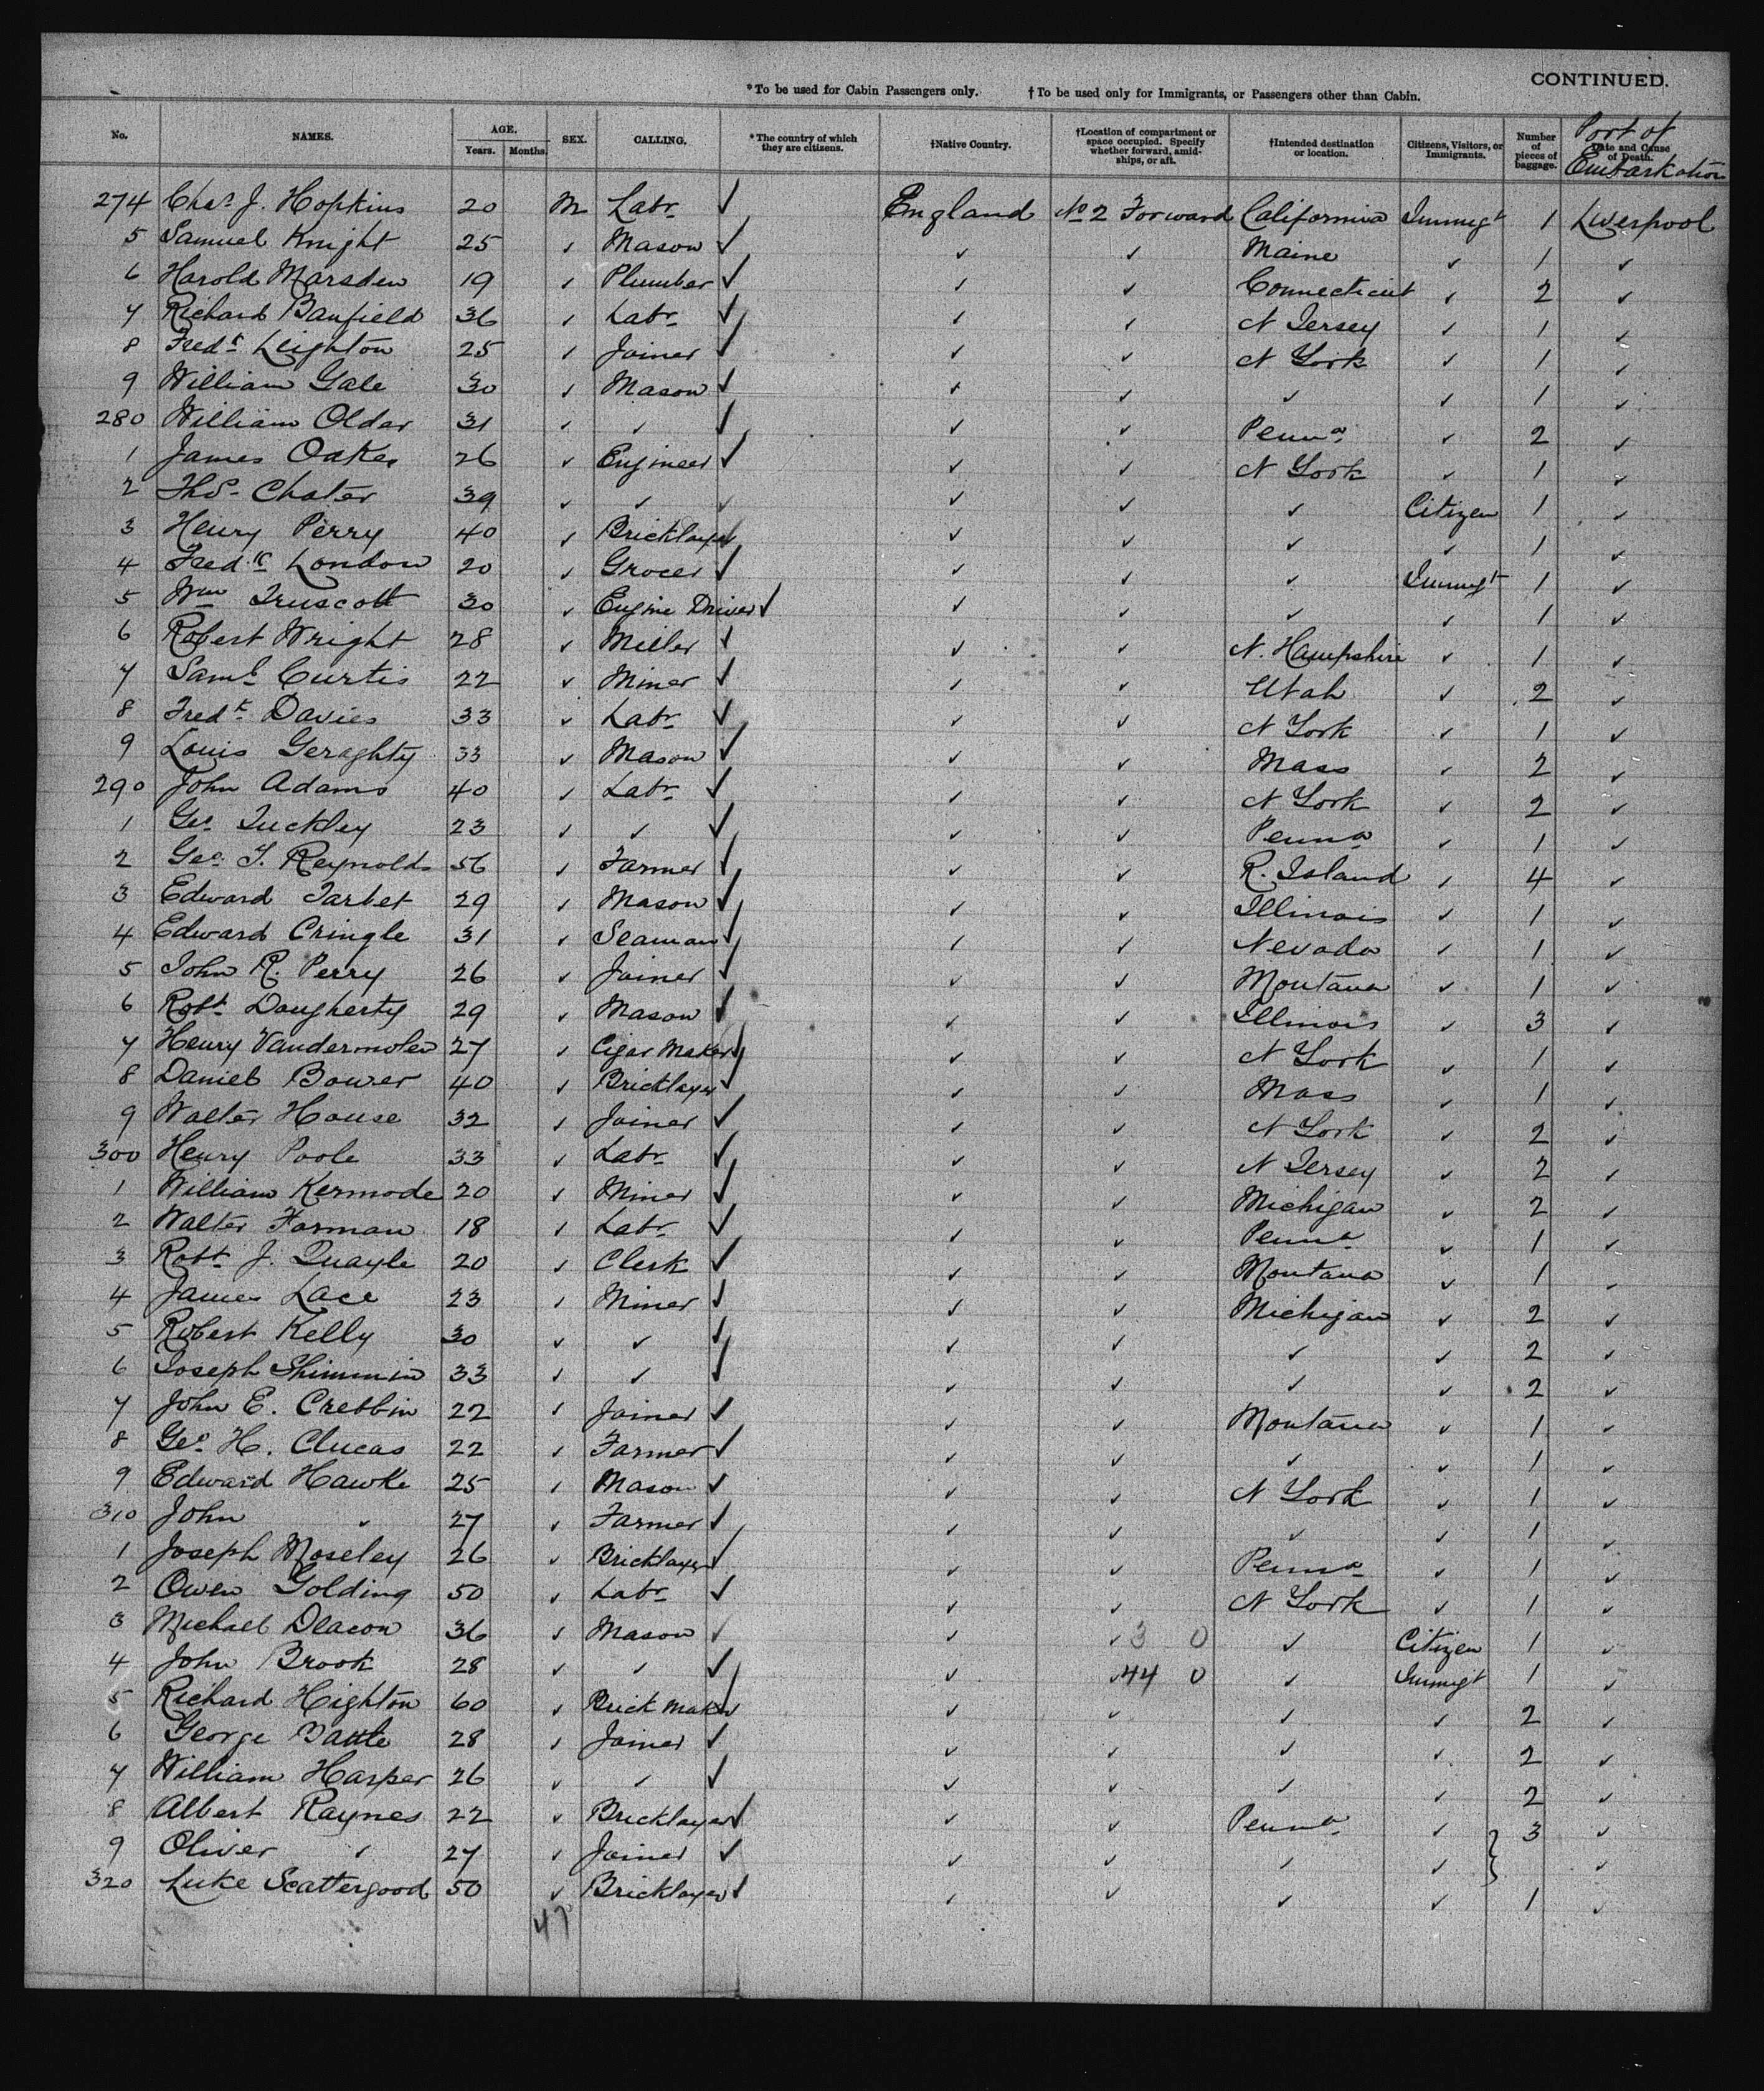 CONTINUED.
*To be used for Cabin Passengers only. †To be used only for Immigrants, or Passengers other than Cabin.
No. NAMES. AGE. Years. Months. SEX. CALLING. *The country of which they are citizens. †Native Country. †Location of compartment or space occupied. Specify whether forward, amidships, or aft. †Intended destination or location. Citizens, Visitors, or Immigrants. Number of pieces of baggage. Date and Cause of Death. Port of Embarkation
274 Chas. J. Hopkins 20 M Labr ✓ England No 2 Forward California Immigt 1 Liverpool
5 Samuel Knight 25 ✓ Mason ✓ ✓ ✓ Maine ✓ 1 ✓
6 Harold Marsden 19 ✓ Plumber ✓ ✓ ✓ Connecticut ✓ 2 ✓
7 Richard Banfield 36 ✓ Labr ✓ ✓ ✓ N Jersey ✓ 1 ✓
8 Fredk Leighton 25 ✓ Joiner ✓ ✓ ✓ N York ✓ 1 ✓
9 William Gale 30 ✓ Mason ✓ ✓ ✓ ✓ ✓ 1 ✓
280 William Oldar 31 ✓ ✓ ✓ ✓ ✓ Penna ✓ 2 ✓
1 James Oakes 26 ✓ Engineer ✓ ✓ ✓ N York ✓ 1 ✓
2 Thos Chater 39 ✓ ✓ ✓ ✓ ✓ ✓ Citizen 1 ✓
3 Henry Perry 40 ✓ Bricklayer ✓ ✓ ✓ ✓ ✓ 1 ✓
4 Fredk London 20 ✓ Grocer ✓ ✓ ✓ ✓ Immigt 1 ✓
5 Wm Truscott 30 ✓ Engine Driver ✓ ✓ ✓ ✓ ✓ 1 ✓
6 Robert Wright 28 ✓ Miller ✓ ✓ ✓ N. Hampshire ✓ 1 ✓
7 Saml Curtis 22 ✓ Miner ✓ ✓ ✓ Utah ✓ 2 ✓
8 Fredk Davies 33 ✓ Labr ✓ ✓ ✓ N York ✓ 1 ✓
9 Louis Geraghty 33 ✓ Mason ✓ ✓ ✓ Mass ✓ 2 ✓
290 John Adams 40 ✓ Labr ✓ ✓ ✓ N York ✓ 2 ✓
1 Geo. Tuckley 23 ✓ ✓ ✓ ✓ ✓ Penna ✓ 1 ✓
2 Geo. T. Reynolds 56 ✓ Farmer ✓ ✓ ✓ R. Island ✓ 4 ✓
3 Edward Tarbet 29 ✓ Mason ✓ ✓ ✓ Illinois ✓ 1 ✓
4 Edward Cringle 31 ✓ Seaman ✓ ✓ ✓ Nevada ✓ 1 ✓
5 John R. Perry 26 ✓ Joiner ✓ ✓ ✓ Montana ✓ 1 ✓
6 Robt Daugherty 29 ✓ Mason ✓ ✓ ✓ Illinois ✓ 3 ✓
7 Henry Vandermolen 27 ✓ Cigar Maker ✓ ✓ ✓ N York ✓ 1 ✓
8 Daniel Bower 40 ✓ Bricklayer ✓ ✓ ✓ Mass ✓ 1 ✓
9 Walter House 32 ✓ Joiner ✓ ✓ ✓ N York ✓ 2 ✓
300 Henry Poole 33 ✓ Labr ✓ ✓ ✓ N Jersey ✓ 2 ✓
1 William Kermode 20 ✓ Miner ✓ ✓ ✓ Michigan ✓ 2 ✓
2 Walter Forman 18 ✓ Labr ✓ ✓ ✓ Penna ✓ 1 ✓
3 Robt J. Quayle 20 ✓ Clerk ✓ ✓ ✓ Montana ✓ 1 ✓
4 James Lace 23 ✓ Miner ✓ ✓ ✓ Michigan ✓ 2 ✓
5 Robert Kelly 30 ✓ ✓ ✓ ✓ ✓ ✓ ✓ 2 ✓
6 Joseph Shimmin 33 ✓ ✓ ✓ ✓ ✓ ✓ ✓ 2 ✓
7 John E. Crebbin 22 ✓ Joiner ✓ ✓ ✓ Montana ✓ 1 ✓
8 Geo. H. Clucas 22 ✓ Farmer ✓ ✓ ✓ ✓ ✓ 1 ✓
9 Edward Hawke 25 ✓ Mason ✓ ✓ ✓ N York ✓ 1 ✓
310 John ✓ 27 ✓ Farmer ✓ ✓ ✓ ✓ ✓ 1 ✓
1 Joseph Moseley 26 ✓ Bricklayer ✓ ✓ ✓ Penna ✓ 1 ✓
2 Owen Golding 50 ✓ Labr ✓ ✓ ✓ N York ✓ 1 ✓
3 Michael Deacon 36 ✓ Mason ✓ ✓ ✓ 3 0 ✓ Citizen 1 ✓
4 John Brook 28 ✓ ✓ ✓ ✓ ✓ 44 0 ✓ Immigt 1 ✓
5 Richard Highton 60 ✓ Brick Maker ✓ ✓ ✓ ✓ ✓ 2 ✓
6 George 28 ✓ Joiner ✓ ✓ ✓ ✓ ✓ 2 ✓
7 William Harper 26 ✓ ✓ ✓ ✓ ✓ ✓ ✓ 2 ✓
8 Albert Raynes 22 ✓ Bricklayer ✓ ✓ ✓ Penna ✓ 3 ✓
9 Oliver ✓ 27 ✓ Joiner ✓ ✓ ✓ ✓ ✓ ✓
320 Luke Scattergood 50 ✓ Bricklayer ✓ ✓ ✓ ✓ ✓ 1 ✓
47